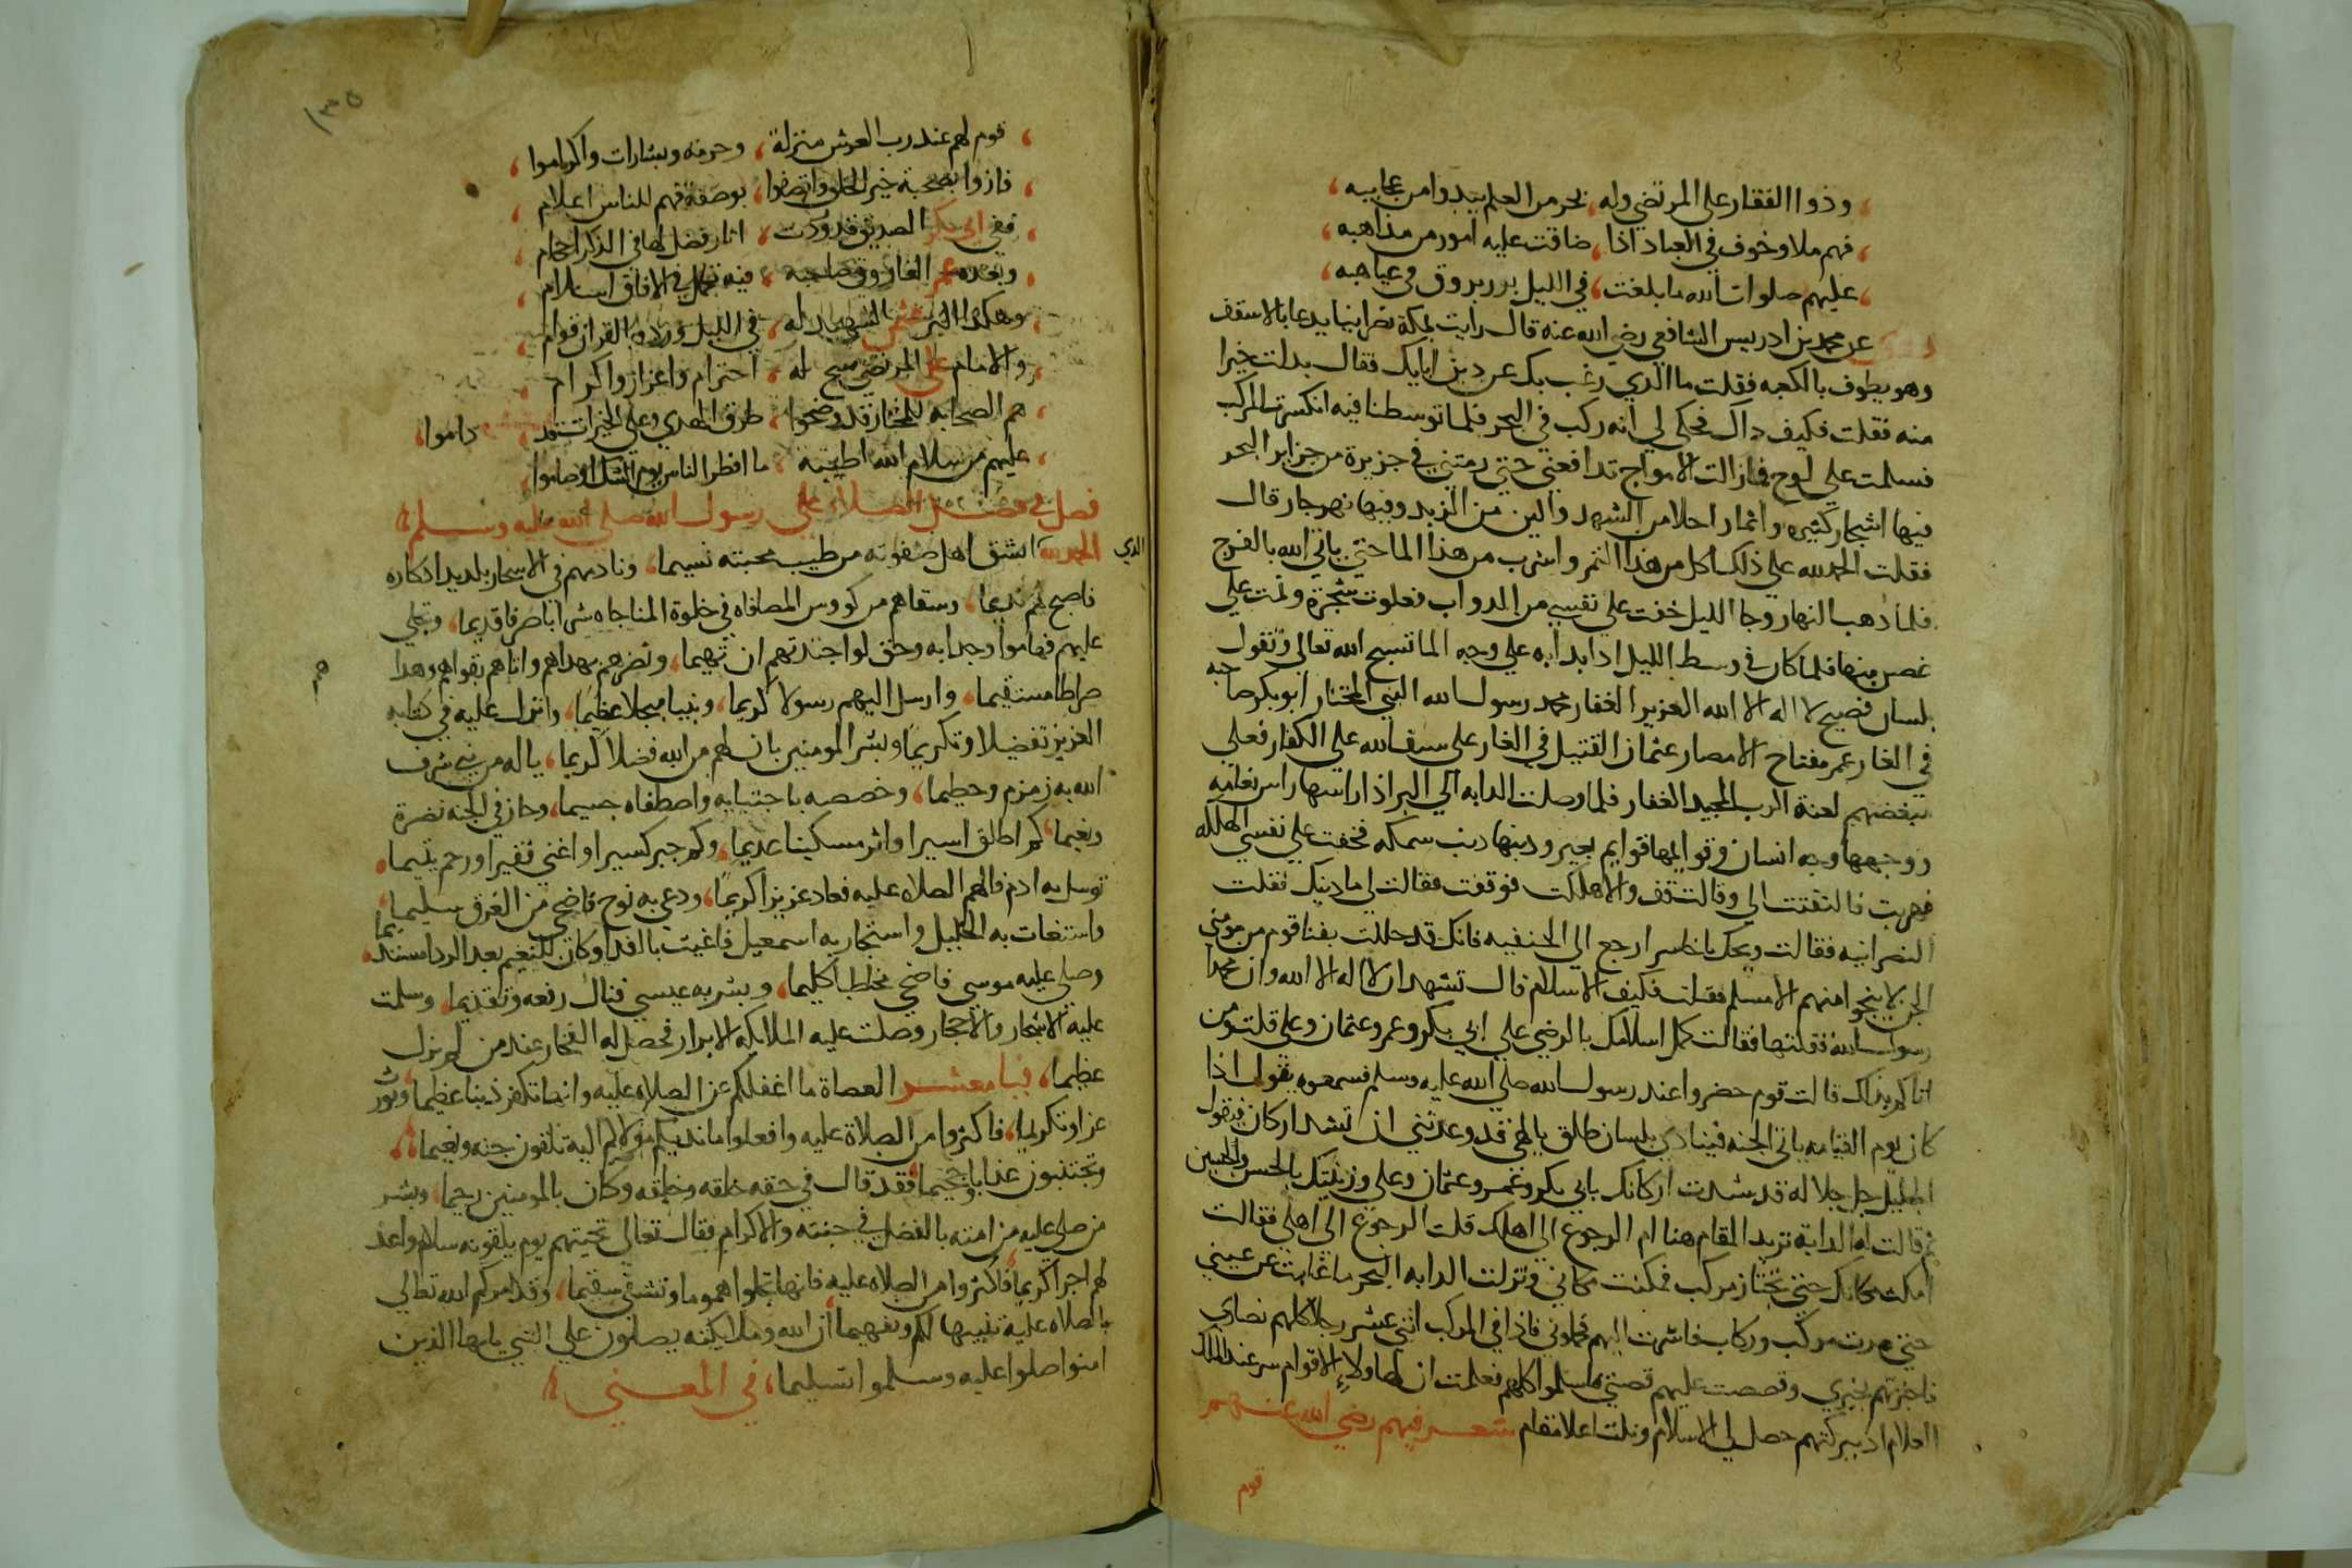 وذوا الفقار على المرتضي وله بحر من العلم يبدوا من عجايبه
فهم ملاد وخوف في العباد اذا ضاقت عليه امور من مذاهبه
عليهم صلوات الله ما بلغت في الليل برر بروق في غياهبه
عن محمد بن ادريس الشافعي رضي الله عنه قال رايت بمكة نصرانيا يدعا بالاسقف
وهو يطوف بالكعبه فقلت ما الذي رغب بك عن دين ابايك فقال بدلت خيرا
منه فقلت فكيف داك فحكى لي انه ركب في البحر فلما توسطنا فيه انكسرت المركب
فسلمت علي لوح فما زالت الامواج تدافعني حتي رمتني في جزيرة من جزاير البحر
فيها اشجار كثيره واثمار احلا من الشهد والين من الزبد وفيها نهر جار قال
فقلت الحمد لله علي ذلك اكل من هذا الثمر واشرب من هذا الما حتي ياتي الله بالفرج
فلما ذهب النهار وجا الليل خفت علي نفسي من الدواب فعلوت شجرة ونمت علي
غصن منها فلما كان في وسط الليل اذا بدابه علي وجه الما تسبح الله تعالي وتقول
بلسان فصيح لا اله الا الله العزيز الغفار محمد رسول الله النبي المختار ابو بكر صاحبه
في الغار عمر مفتاح الامصار عثمان القتيل في الدار على سيف الله علي الكفار فعلي
مبغضهم لعنة الرب المجيد الغفار فلما وصلت الدابه الي البر اذا راسها راس نعامه
ووجهها وجه انسان وقوايمها قوايم بعير ودنبها دنب سمكه فخفت علي نفسي الهلكه
فهربت فالتفتت الي وقالت قف والا هلكت فوقفت فقالت لي ما دينك فقلت
النصرانيه فقالت ويحك يا خاسر ارجع الي الحنفيه فانك قد حللت بفنا قوم من مومني
الجن لا ينجوا منهم الا مسلم فقلت فكيف الاسلام قال تشهد ان لا اله الا الله وان محمدا
رسول الله فقلتها فقالت كمل اسلامك بالرضي علي ابي بكر وعمر وعثمان وعلي قلت ومن
اتاكم بذلك قالت قوم حضروا عند رسول الله صلي الله عليه وسلم فسمعوه يقول اذا
كان يوم القيامه ياتي الجنه فينادي بلسان طلق يا الهي قد وعدتني ان تشد اركاني فيقول
الجليل جل جلاله قد شدت اركانك بابي بكر وعمر وعثمان وعلي وزينتك بالحسن والحسين
ثم قالت له الدابة تريد المقام هنا ام الرجوع الي اهلك قلت الرجوع الي اهلي فقالت
امكث مكانك حتي تجتاز مركب فمكثت مكاني ونزلت الدابه البحر ما غابت عن عيني
حتي مرت مركب وركاب فاشرت اليهم فحملوني فاذا في المركب اثني عشر رجلا كلهم نصاري
فاخبرتهم بخبري وقصصت عليهم قصتي فاسلموا كلهم فعلمت ان لهاولاء الاقوام سر عند الملك
العلام اذ ببركتهم حصل لي الاسلام ونلت اعلا مقام شعر فيهم رضي الله عنهم
قوم
١٣٥
قوم لهم عند رب العرش منزلة وحرمه وبشارات واكراموا
فازوا بصحبة خير الخلق واتصفوا بوصفه فهم للناس اعلام
ففي ابي بكر الصديق قد وردت اثار فضل لها في الذكر احكام
وبعده عمر الفاروق صاحبه فيه تجمل في الافاق اسلام
وهكذا البر عثمان الشهيد له في الليل ورد وبالقران قوام
والامام علي المرتضي سمح له احترام واعزاز واكرام
هم الصحابه للمختار قد وضحوا طرق الهدي وعلي الخيرات قد داموا
عليهم من سلام الله اطيبه ما افطر الناس يوم الشك او صاموا
فصل في فضل الصلاة على رسول الله صلى الله عليه وسلم
الحمد لله الذي انشق اهل صفوته من طيب محبته نسيما ونادمهم في الاسحار بلديد ادكاره
فاصبح لهم نديما وسقاهم من كووس المصافاه في خلوة المناجاه شرابا صرفا قديما وتجلي
عليهم فهاموا وجدا به وحق لواجدتهم ان تهيما ونصرهم بهداهم واتاهم تقواهم وهداهم
صراطا مستقيما وارسل اليهم رسولا كريما ونبيا مبجلا عظيما وانزل عليه في كتابه
العزيز تفضيلا وتكريما وبشر المومنين بان لهم من الله فضلا كريما ياله من نبي شرف
الله به زمزم وحطيما وخصصه باجتبايه واصطفاه جسيما وحاز في الجنه نضرة
ونعيما كم اطلق اسيرا واثر مسكينا عديما وكم جبر كسيرا او اغني فقيرا ورحم يتيما
توسل به ادم فالهم الصلاه عليه فعاد عزيزا كريما ودعي به نوح فاضحي من الغرق سليما
واستغاث به الخليل واستجار به اسمعيل فاغيث بالفدا وكان للنعيم بعد الردا مستديما
وصلي عليه موسي فاضحي مخاطبا كليما وبشر به عيسي فنال رفعه وتقديما وسلمت
عليه الاشجار والاحجار وصلت عليه الملايكه الابرار فحصل له الفخار عند من لم يزل
عظيما فيا معشر العصاة ما اغفلكم عن الصلاه عليه وانها تكفر ذنبا عظيما وتورث
عزا وتكريما فاكثروا من الصلاة عليه وافعلوا ما ندبكم مولاكم اليه تلقون جنه ونعيما
وتجتنبون عذابا وجحيما فقد قال في حقه خلقه وخلقه وكان بالمومنين رحيما وبشر
من صلي عليه من امته بالفضل في جنته والاكرام فقال تعالي تحيتهم يوم يلقونه سلام واعد
لهم اجرا كريما فاكثروا من الصلاه عليه فانها تجلوا هموما وتشفي سقيما وقد امركم الله تعالي
بالصلاه عليه تنبيها لكم وتفهيما ان الله وملايكته يصلون علي النبي يا ايها الذين
امنوا صلوا عليه وسلموا تسليما في المعني